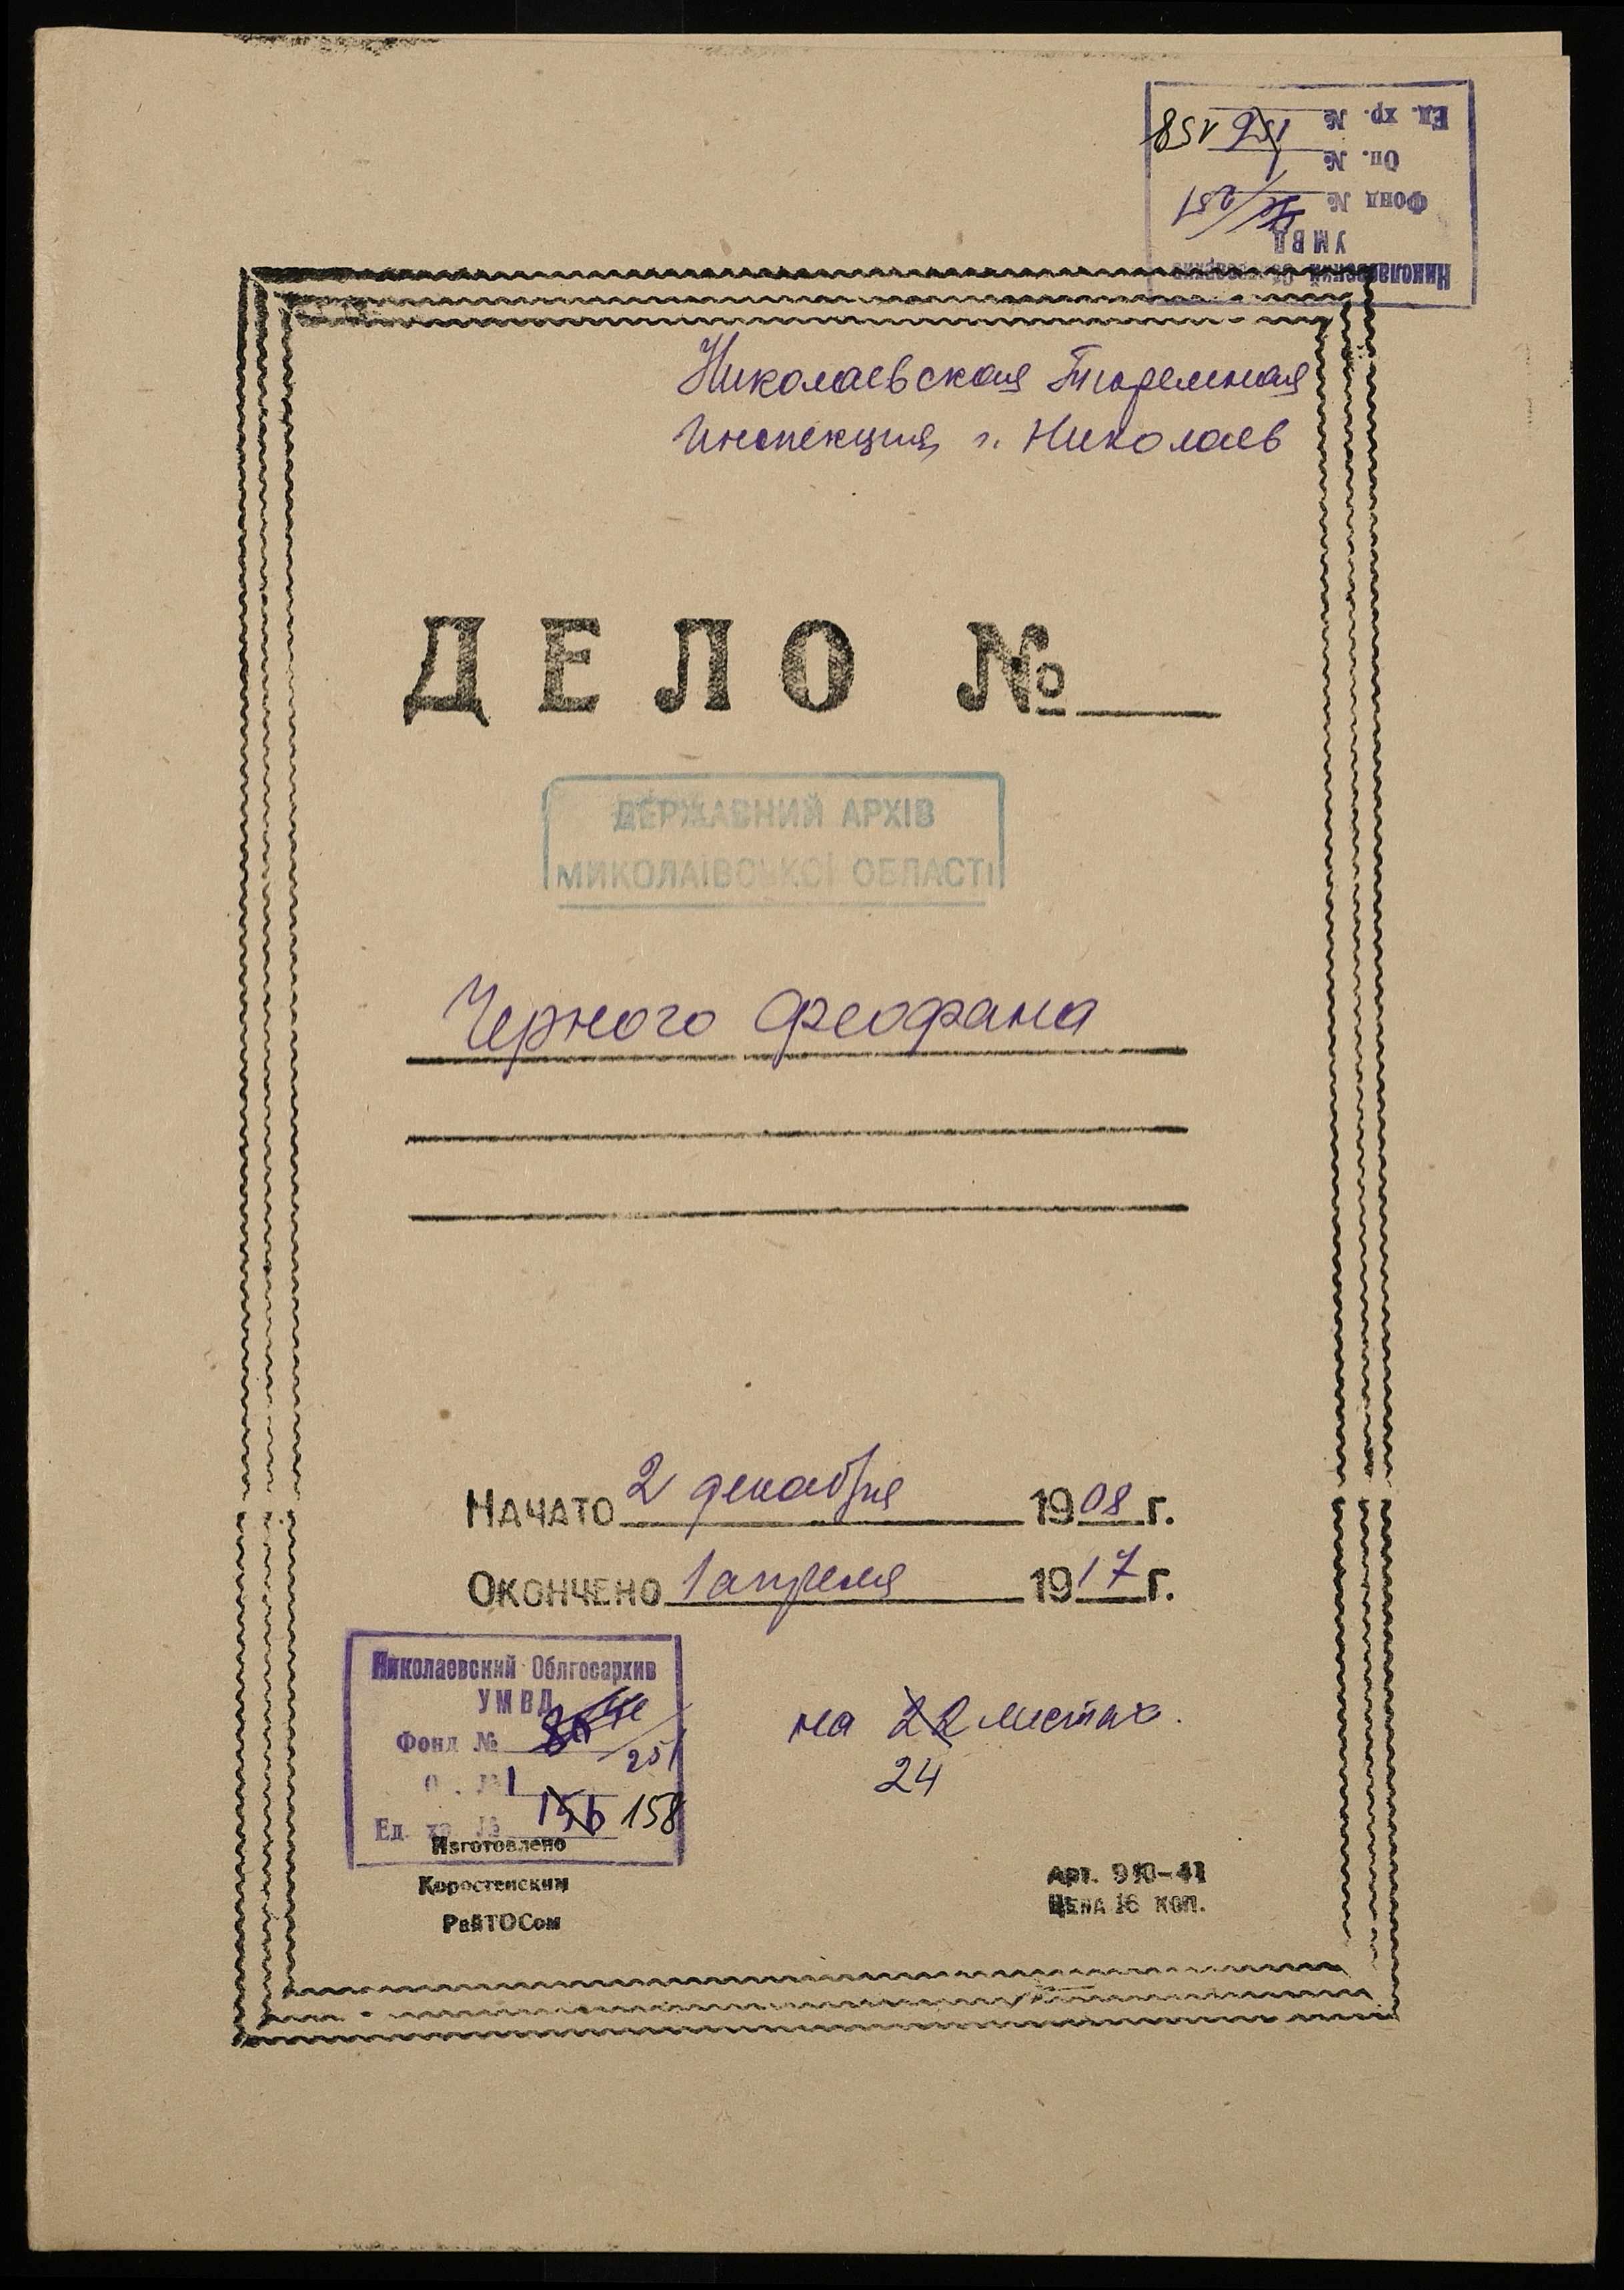 Николаевский Облгосархив
УМВД
Фонд № 251
Оп. № 1
Ед. хр. № 156 158
Николаевская Тюремная
Инспекция г. Николаев
ДЕЛО №
ДЕРЖАВНИЙ АРХІВ
МИКОЛАЇВСЬКОЇ ОБЛАСТІ
Черного Феофана
НАЧАТО 2 декабря 1908 г.
ОКОНЧЕНО 1 апреля 1917 г.
Николаевский Облгосархив
УМВД
Фонд № 251
О . № 1
Ед. хр. № 156 158
на 22 листах.
24
Изготовлено
Коростенским
РайТОСом
Арт. 910-41
ЦЕНА 16 КОП.